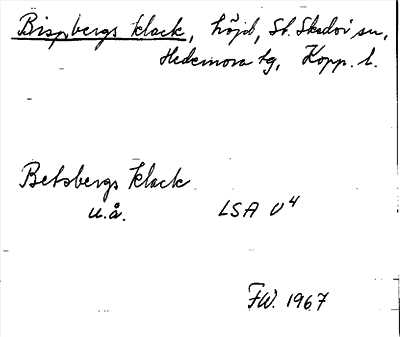 Bispbergs klack, höjd, St. Skedvi sn,
Hedemora tg, Kopp. l.
Betsbergs klack
u.å. LSA U⁴
FW. 1967